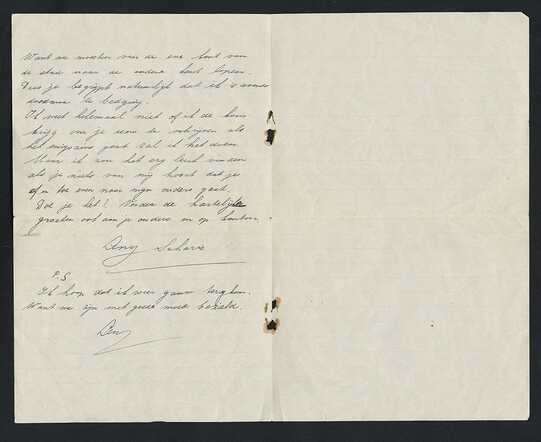 Want we moesten van de ene kant van
de stad naar de andere kant lopen.
Dus je begrijpt natuurlijk dat ik 's avonds
doodmoe te bedging.
Ik weet helemaal niet of ik de kans
krijg om je weer te schrijven als
het enigszins gaat zal ik het doen
Maar ik zou het erg leuk vinden
als je niets van mij hoort dat je
af en toe even naar mijn ouders gaat.
Doe je het? Verder de hartelijke
groeten ook aan je ouders en op kantoor.
Leny
P.S
Ik hoop dat ik weer gauw terug ben.
Want we zijn met goede moed bezield.
Leny